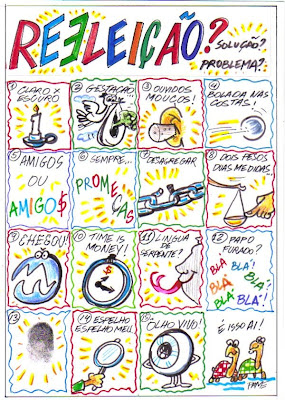 REELEIÇÃO?
SOLUÇÃO?
PROBLEMA?
1 CLARO X
ESCURO
2 GESTAÇÃO...
3 OUVIDOS
MOUCOS!
4 BOLADA NAS
COSTAS!
5 AMIGOS
OU
AMIGO$
6 SEMPRE...
PROMEÇAS
7 DESAGREGAR
8 DOIS PESOS
DUAS MEDIDAS
9 CHEGOU!
10 TIME IS
MONEY!
$
11 LINGUA DE
SERPENTE?
12 PAPO
FURADO?
BLÁ BLÁ!
BLÁ BLÁ!
BLÁ BLÁ!
13
14 ESPELHO
ESPELHO MEU,
15 OLHO VIVO!
É ISSO AI!